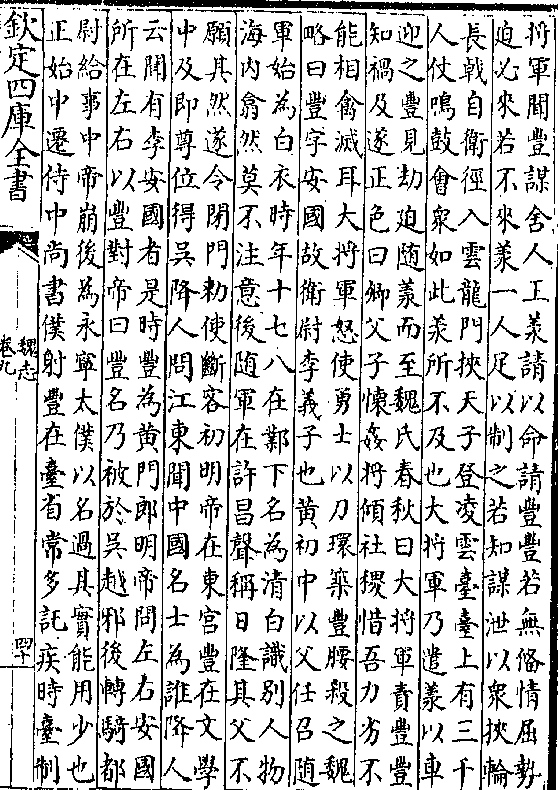 將軍聞豐謀舍人王羕請以命請豐豐若無備情屈勢
迫必來若不來羕一人足以制之若知謀泄以衆挾輪
長戟自衛徑入雲龍門挾天子登凌雲臺臺上有三千
人仗鳴鼓會衆如此羕所不及也大將軍乃遣羕以車
迎之豐見劫迫随羕而至魏氏春秋曰大將軍責豐豐
知禍及遂正色曰卿父子懷姦将傾社稷惜吾力劣不
能相禽滅耳大将軍怒使勇士以刀環築豐腰殺之魏
略曰豐字安國故衛尉李義子也黄初中以父任召随
軍始為白衣時年十七八在鄴下名為清白識别人物
海内翕然莫不注意後随軍在許昌聲稱日隆其父不
願其然遂令閉門勑使斷客初明帝在東宮豐在文學
中及即尊位得吳降人問江東聞中國名士為誰降人
云聞有李安國者是時豐為黄門郎明帝問左右安國
所在左右以豐對帝曰豐名乃被於吳越邪後轉騎都
尉給事中帝崩後為永寧太僕以名過其實能用少也
正始中遷侍中尚書僕射豐在臺省常多託疾時臺制
欽定四庫全書
魏志
卷九
四十